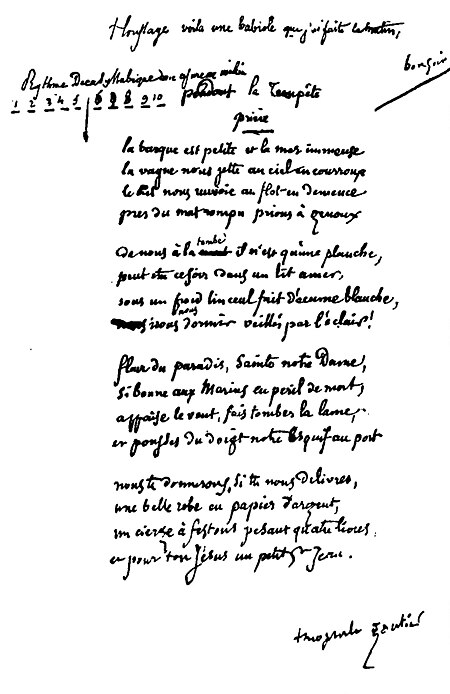 houssaye voila une babiole que j'ai faite ce matin,
bonsoir
Rythme Decasyllabique avec cesure au milieu
1 2 3 4 5 6 7 8 9 10
pendant la Tempête
prière
la barque est petite et la mer immense
la vague nous jette au ciel en courroux
le ciel nous renvoie au flot en demence
pres du mat rompu prions à genoux
de nous à la tombe il n'est qu'une planche,
peut etre ce soir dans un lit amer,
sous un froid linceul fait d'ecume blanche,
irons nous dormir veillés par l'éclair!
fleur du paradis, Sainte notre Dame,
Si bonne aux Marins en peril de mort,
appaise le vent, fais tomber la lame,
et pousse du doigt notre Esquif au port
nous te donnerons, Si tu nous delivres,
une belle robe en papier d'argent,
un cierge à festons pesant quatre livres
et pour ton Jésus un petit St Jean.
theophile Gautier